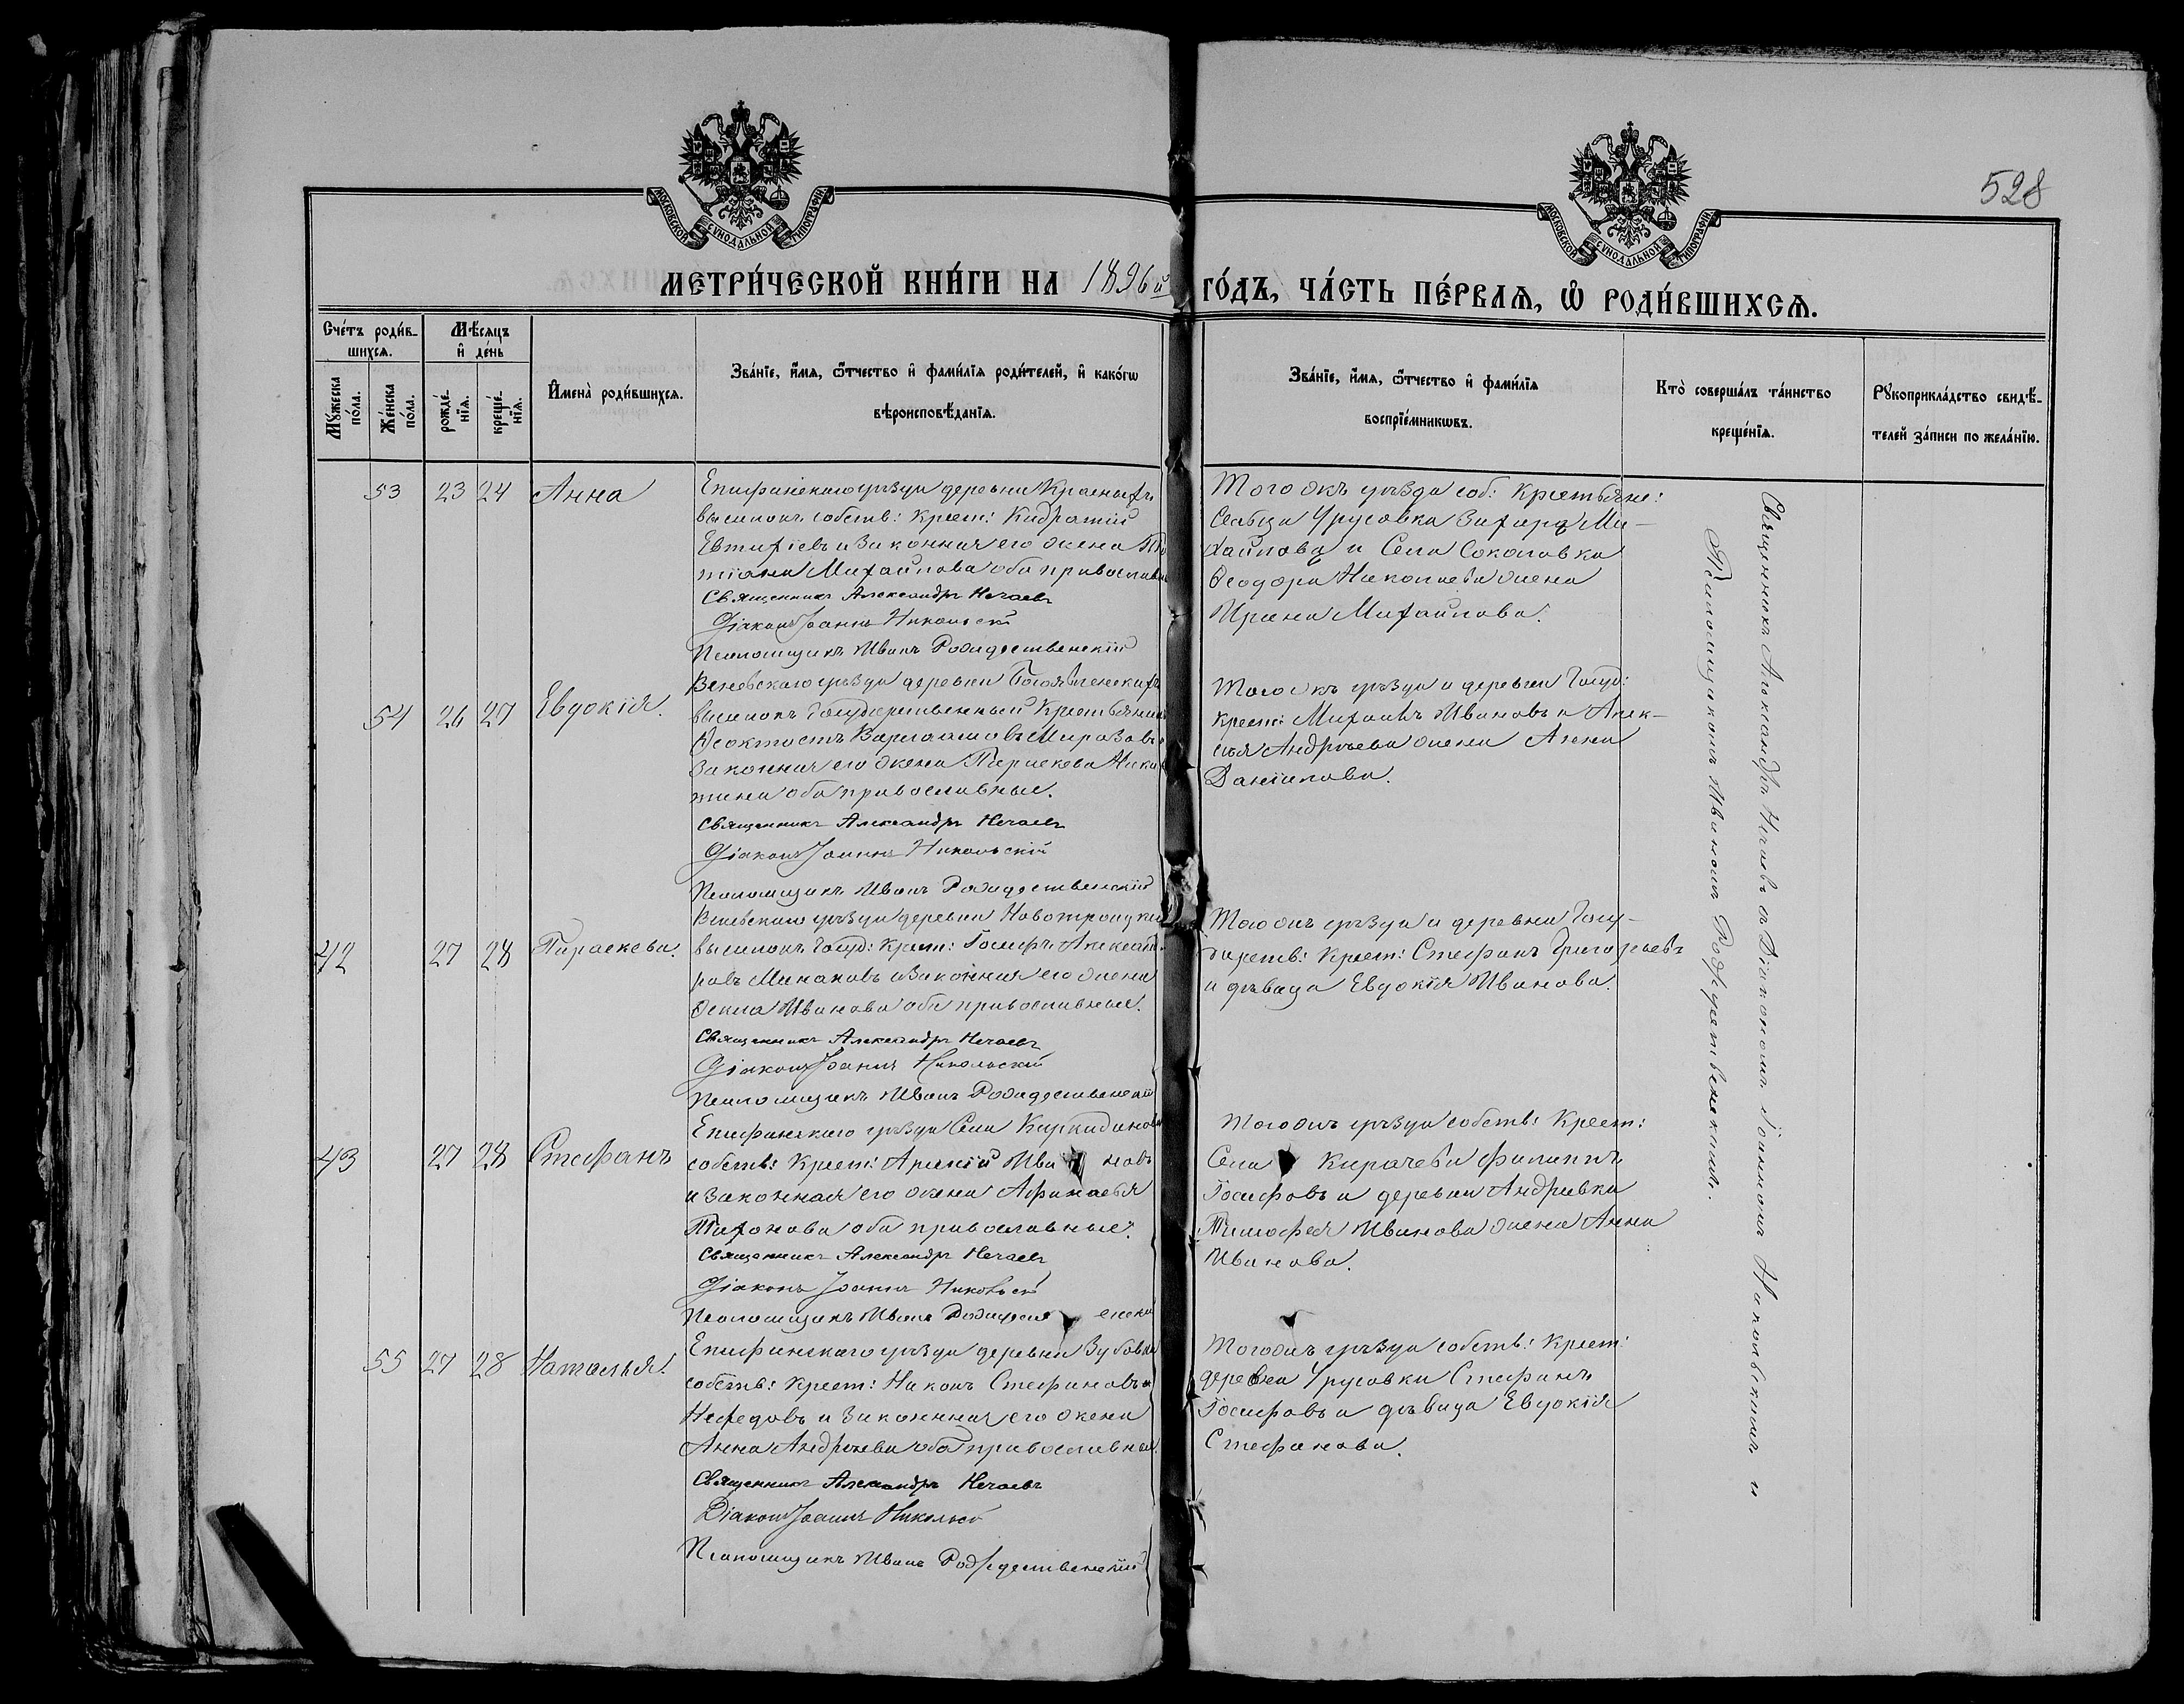 528
МОСКОВСКОЙ СѴНОДАЛЬНОЙ ТИПОГРАФІИ
МОСКОВСКОЙ СѴНОДАЛЬНОЙ ТИПОГРАФІИ
МЕТРИ́ЧЕСКОЙ КНИ́ГИ НА 1896й ГО́ДЪ, ЧА́СТЬ ПЕ́РВАѦ, Ѡ҆ РОДИ́ВШИХСѦ.
Сче́тъ роди́в-
шихсѧ.
Мꙋ́жеска
по́ла.
Же́нска
по́ла.
Мѣ́сяцъ
и҆ де́нь
рожде́-
нїѧ.
креще́-
нїѧ.
И҆мена̀ роди́вшихсѧ.
Зва́нїе, и҆́мѧ, ѻ҆́тчество и҆ фами́лїѧ роди́телей, и҆ како́гѡ
вѣроисповѣ́данїѧ.
Зва́нїе, и҆́мѧ, ѻ҆́тчество и҆ фами́лїѧ
воспрїе́мникѡвъ.
Кто̀ соверша́лъ та́инство
креще́нїѧ.
Рꙋкоприкла́дство свидѣ́-
телей за́писи по жела́нїю.
53 23 24 Анна
Епифанскаго уѣзда деревни Красныхъ
выселокъ собств: крест:
Евтихіевъ и законная его жена
Михайлова оба православн
Священникъ Александръ Нечаевъ
Діаконъ Іоаннъ Никольскій
Псаломщикъ Иванъ Рождественскій
Того жъ уѣзда соб: крестьяне:
Сельца Урусовка Захара Ми-
хайлова и Села Соколовка
Ѳеодора Николаева жена
Ирина Михайлова.
54 26 27 Евдокія.
Веневскаго уѣзда деревни Богоявленскихъ
выселокъ Государственный крестьянинъ
Ѳеоктистъ Варлаамовъ
законная его жена Параскева Ники
тина оба православные.
Священникъ Александръ Нечаевъ
Діаконъ Іоаннъ Никольскій
Псаломщикъ Иванъ Рождественскій
Того жъ уѣзда и деревни Госуд:
крест: Михаилъ Ивановъ и Алек-
сѣя Андреева жена Анна
Даніилова.
42 27 28 Параскева.
Веневскаго уѣзда деревни Новотроицки
выселокъ Госуд: крест: Іосифъ Александ-
ровъ Минаковъ и законная его жена
Ѳекла Иванова оба православные.
Священникъ Александръ Нечаевъ
Діаконъ Іоаннъ Никольскій
Псаломщикъ Иванъ Рождественскій
Того жъ уѣзда и деревни Госу-
дарств: крест: Стефанъ Григорьевъ
и дѣвица Евдокія Иванова.
43 27 28 Стефанъ
Епифанскаго уѣзда Села
собств: крест: Арсеній Ива новъ
и законная его жена Афанасья
Тихонова оба православные.
Священникъ Александръ Нечаевъ
Діаконъ Іоаннъ Никольскій
Псаломщикъ Иванъ
Того жъ уѣзда собств: крест:
Села Кирачева Филиппъ
Іосифовъ и деревни Андреевки
Тимофея Иванова жена Анна
Иванова.
55 27 28 Наталья.
Епифанскаго уѣзда деревни Зубовки
собств: крест: Наконъ Стефановъ
Нефедовъ и законная его жена
Анна Андреева оба православные
Священникъ Александръ Нечаевъ
Діаконъ Іоаннъ Никольскій
Псаломщикъ Иванъ Рождественскій
Того жъ уѣзда собств: крест:
деревни Урусовки Стефанъ
Іосифовъ и дѣвица Евдокія
Стефанова.
Священникъ Александръ Нечаевъ съ Діакономъ Іоанномъ Никольскимъ и
Псаломщикомъ Иваномъ Рождественскимъ.